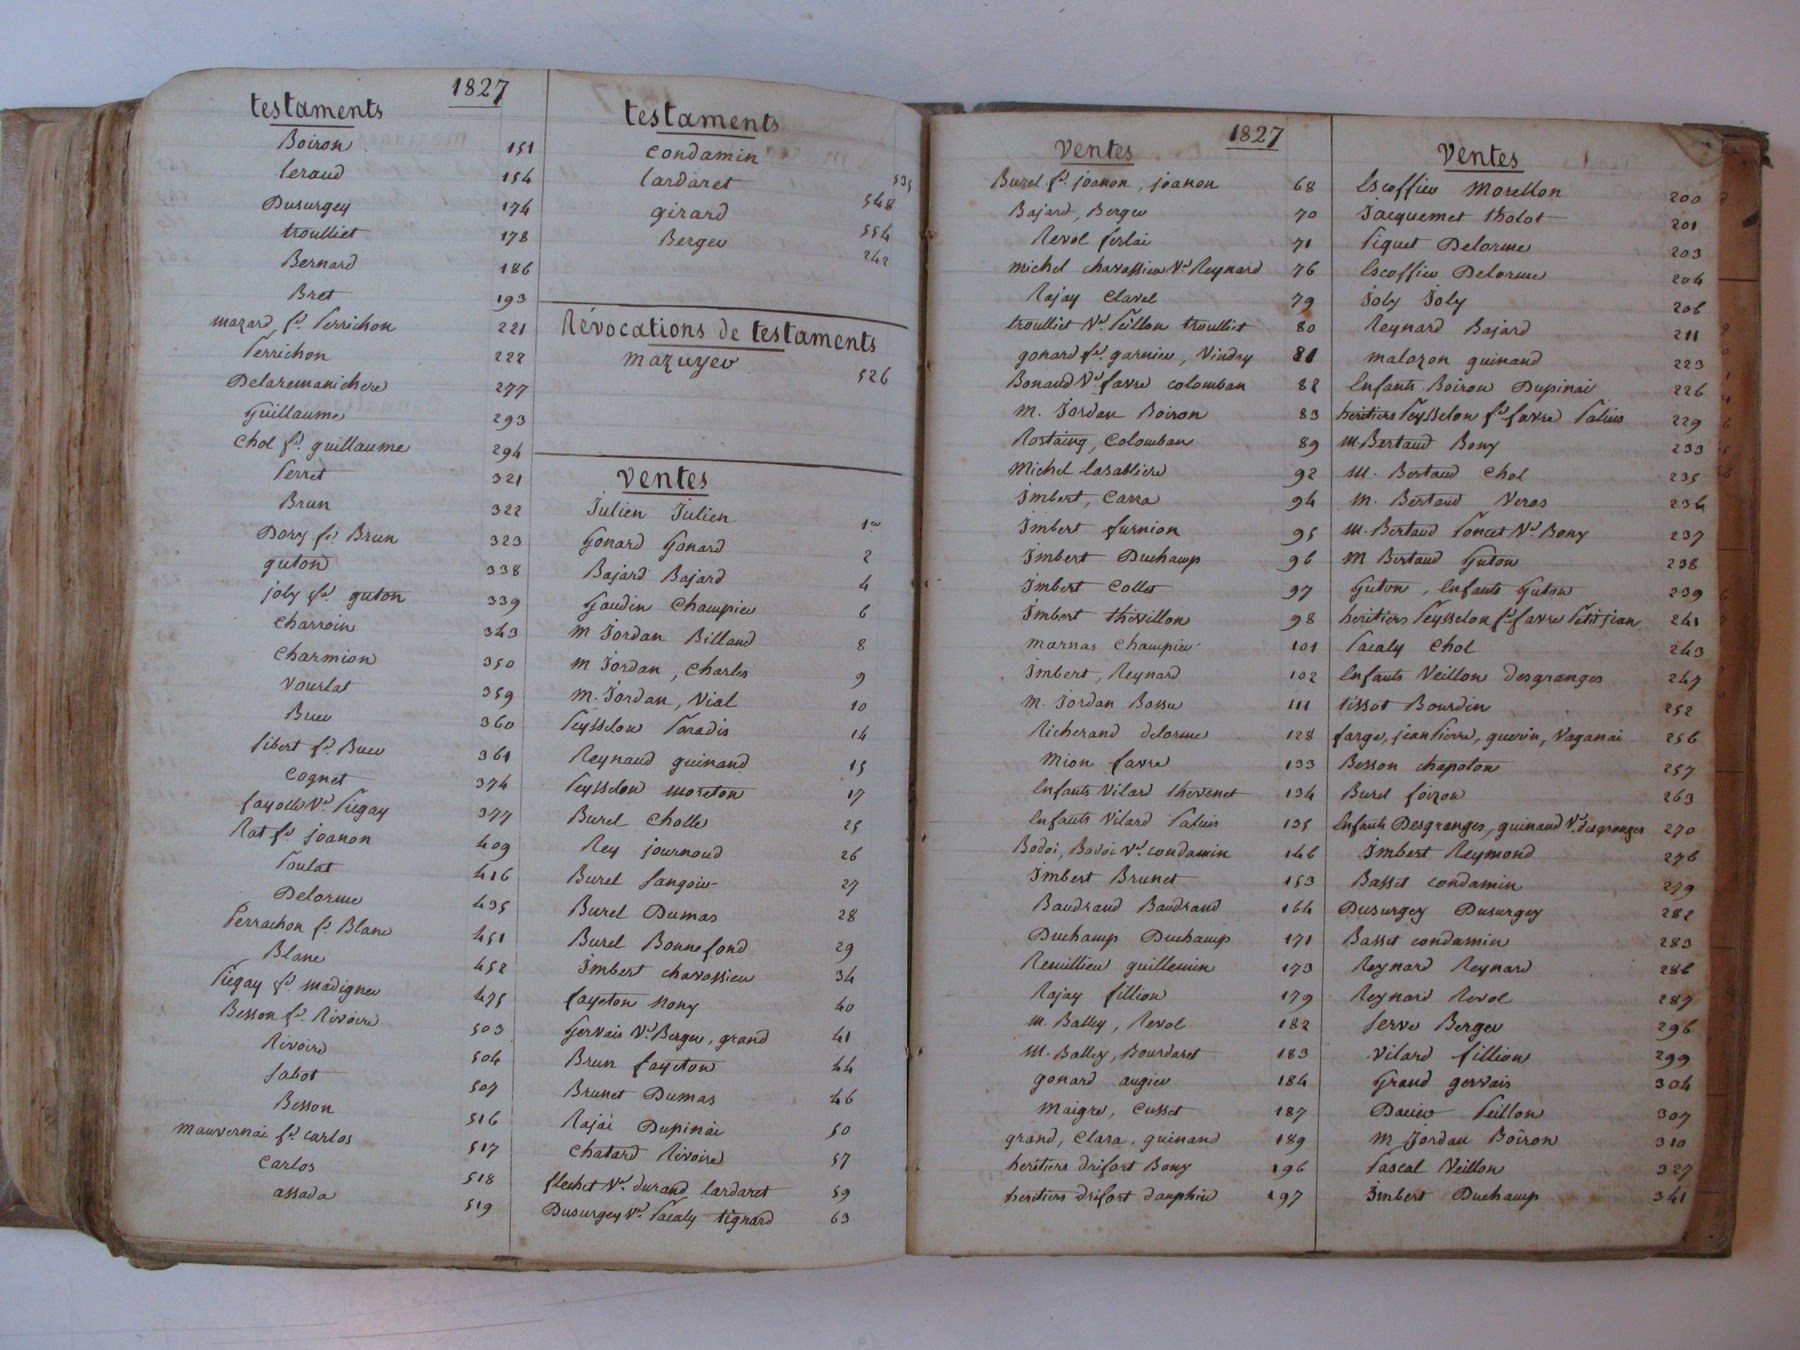 1827
testaments
Boiron 151
Ceraud 154
Dusurgey 174
troulliet 178
Bernard 186
Bret 193
mazard, fe Perrichon 221
Perrichon 222
Delaremanichere 277
Guillaume 293
Chol fe guillaume 294
Perret 321
Brun 322
Dory fe Brun 323
guton 338
joly fe guton 339
Charroin 343
Charmion 350
Vourlat 359
Buer 360
fibert fe Buer 361
Cognet 374
fayolle Ve Piegay 377
Rat fe joanon 409
Poulat 416
Delorme 435
Perrachon fe Blanc 451
Blanc 452
Piegay fe madignier 475
Besson fe Rivoire 503
Rivoire 504
Sabot 507
Besson 516
mauvernai fe carlos 517
Carlos 518
assada 519
testaments
Condamin 535
Lardaret 548
girard 554
Berger 242
Révocations de testaments
mazuyer 526
Ventes
Julien Julien 1er
Gonard Gonard 2
Bajard Bajard 4
Gaudin Champier 6
m Jordan Billaud 8
m Jordan, Charles 9
m. Jordan, Vial 10
Peysselon Paradis 14
Reynaud guinand 15
Peysselon moreton 17
Burel Cholle 25
Rey journoud 26
Burel Sangoin 27
Burel Dumas 28
Burel Bonnefond 29
Imbert chavassieu 34
fayeton Nony 40
Gervais Ve Berger, grand 41
Brun fayeton 44
Brunet Dumas 46
Rajai Dupinai 50
Chatard Rivoire 57
flechet Ve durand lardaret 59
Dusurgey Ve Pacaly tignard 63
1827
Ventes
Burel fe joanon, joanon 68
Bajard, Berger 70
Revol ferlai 71
michel chavassieu Ve Reynard 76
Rajay Clavel 79
troulliet Ve Peillon troulliet 80
gonard fe garnier, Vindry 81
Bonaud Ve favre colomban 82
m. Jordan Boiron 83
Rostaing, Colomban 89
Michel Lasabliere 92
Imbert, Carra 94
Imbert furnion 95
Imbert Duchamp 96
Imbert Collet 97
Imbert thevillon 98
marnas Champier 101
Imbert, Reynard 102
m. Jordan Bossu 111
Richerand delorme 128
Mion favre 133
Enfants Vilard thevenet 134
Enfants Vilard Paluis 135
Bodoi, Badoi Ve condamin 146
Imbert Brunet 153
Baudrand Baudrand 164
Duchamp Duchamp 171
Remillieu guillemin 173
Rajay fillion 179
m. Balley, Revol 182
m. Balley, Bourdaret 183
gonard augier 184
Maigre, Cusset 187
grand, Clara, guinand 189
heritiers drifort Bony 196
heritiers drifort dauphin 197
Ventes
Escoffier Morellon 200
Jacquemet tholot 201
Piquet Delorme 203
Escoffier Delorme 204
Joly Joly 206
Reynard Bajard 211
malozon guinand 223
Enfants Boiron Dupinai 226
heritiers Peysselon fe favre Paluis 229
m. Bertaud Bony 233
m. Bertaud Chol 235
m. Bertaud Veros 236
m. Bertaud Poncet Ve Bony 237
m Bertaud Guton 238
Guton, Enfants Guton 239
heritiers Peysselon fe favre Petitjean 241
Pacaly Chol 243
Enfants Veillon desgranges 247
tissot Bourdin 252
farge, jean Pierre, guerin, Vaganai 256
Besson chapoton 257
Burel foizon 263
Enfants Desgranges, guinand Ve desgranges 270
Imbert Reymond 276
Basset condamin 279
Dusurgey Dusurgey 282
Basset condamin 283
Reynard Reynard 286
Reynard Revol 287
Serve Berger 296
Vilard fillion 299
Grand gervais 304
Peillon 307
m Jordan Boiron 310
Pascal Veillon 327
Imbert Duchamp 341